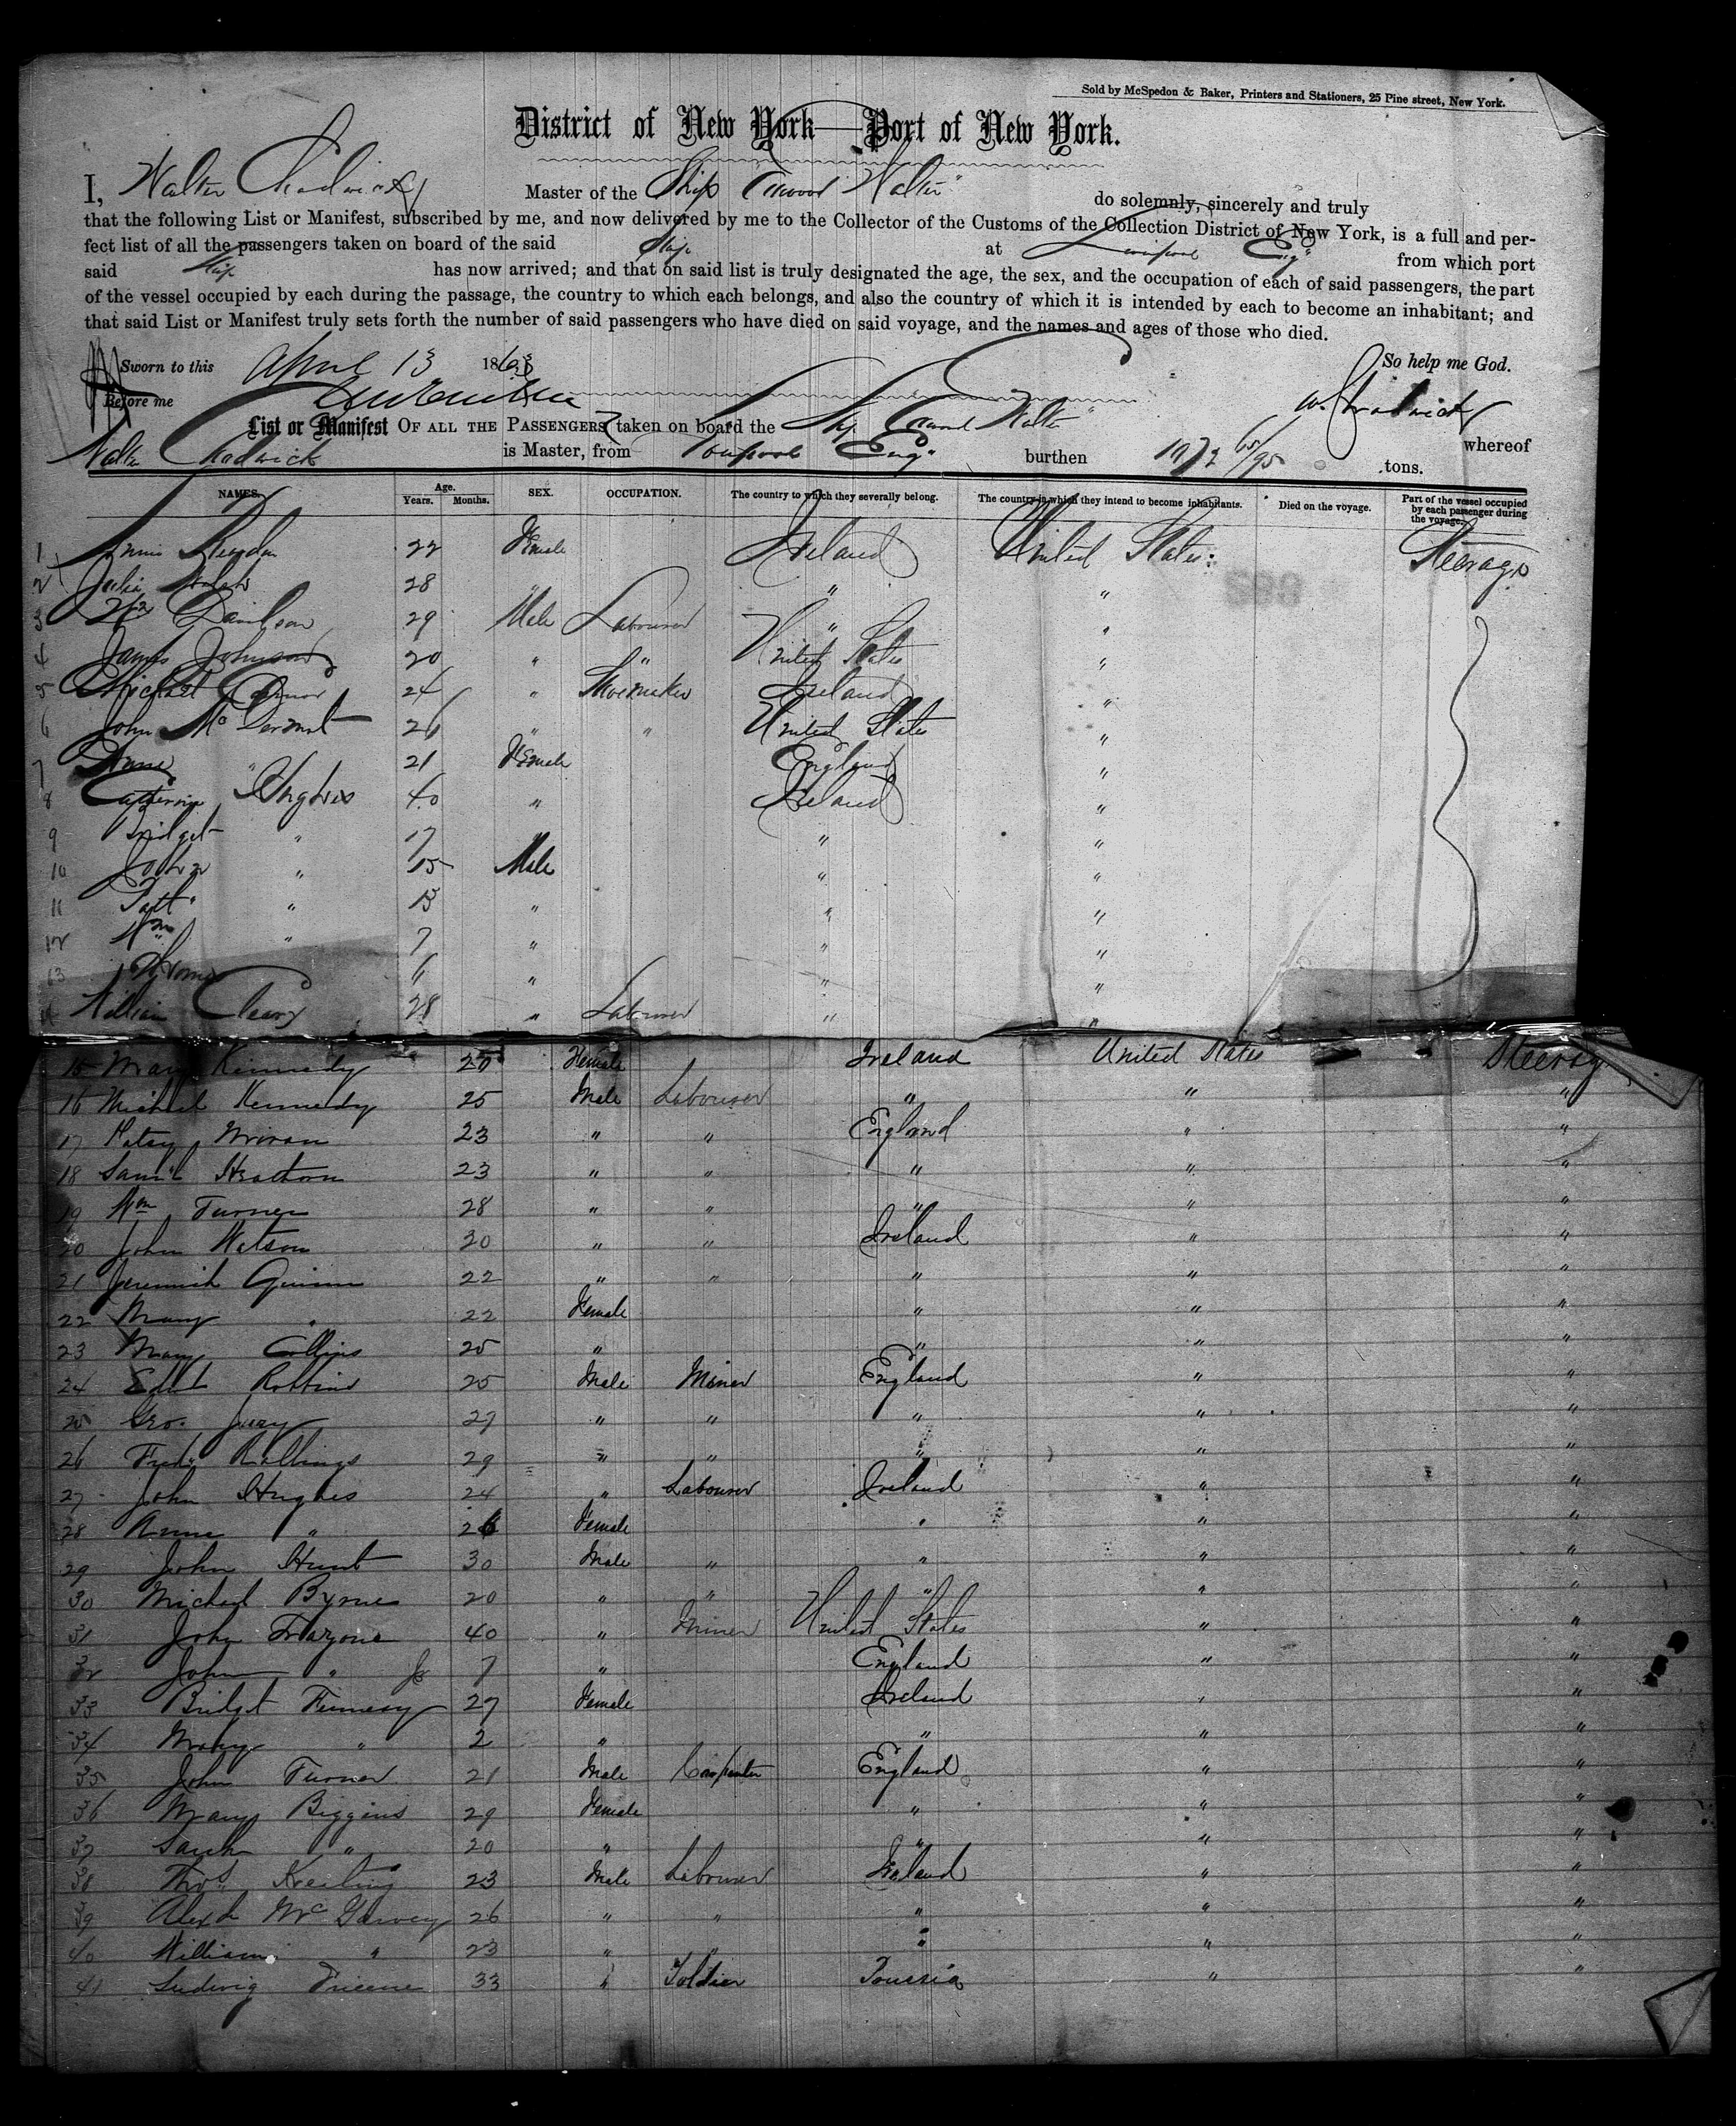 Sold by McSpedon & Baker, Printers and Stationers, 25 Pine street, New York.
District of New York—Port of New York.
I, Walter Chadwick Master of the Ship Elwood Walter do solemnly, sincerely and truly
that the following List or Manifest, subscribed by me, and now delivered by me to the Collector of the Customs of the Collection District of New York, is a full and per-
fect list of all the passengers taken on board of the said Ship at Liverpool Eng" from which port
said Ship has now arrived; and that on said list is truly designated the age, the sex, and the occupation of each of said passengers, the part
of the vessel occupied by each during the passage, the country to which each belongs, and also the country of which it is intended by each to become an inhabitant; and
that said List or Manifest truly sets forth the number of said passengers who have died on said voyage, and the names and ages of those who died.
So help me God.
Sworn to this April 13 1863
Before me
W. Chadwick
List or Manifest OF ALL THE PASSENGERS taken on board the Ship Elwood Walter whereof
Walter Chadwick is Master, from Liverpool Eng" burthen tons.
NAMES. Age. Years. Months. SEX. OCCUPATION. The country to which they severally belong. The country in which they intend to become inhabitants. Died on the voyage. Part of the vessel occupied by each passenger during the voyage.
1 22 Female Ireland United States Steerage
2 Julia Walsh 28 " "
3 Wm Davidson 29 Male Labourer " "
4 James Johnson 20 " " United States "
5 Michael Connor 24 " Shoemaker Ireland "
6 John McDermot 26 " " United States "
7 Anne " 21 Female England "
8 Catherine Hughes 40 " Ireland "
9 Bridget " 17 " "
10 John " 15 Male " "
11 Patt " 13 " " "
12 Wm " 7 " " "
13 Thomas 6 " " "
14 William Cleary 28 " Labourer " "
15 Mary Kennedy 27 Female Ireland United States Steerage
16 Michael Kennedy 25 Male Labourer " " "
17 Patsy 23 " " England " "
18 Saml 23 " " " " "
19 Wm Turner 28 " " " " "
20 John Watson 30 " " Ireland " "
21 Jeremiah Quinn 22 " " " " "
22 Mary " 22 Female " " "
23 Mary Collins 25 " " " "
24 Robbins 25 Male Miner England " "
25 Geo. Jury 27 " " " " "
26 Fredk Rallings 29 " " " " "
27 John Hughes 24 " Labourer Ireland " "
28 Anne " 26 Female " " "
29 John Hunt 30 Male " " " "
30 Michael Byrne 20 " " " " "
31 John 40 " Miner United States " "
32 John " Jr 7 " England " "
33 Bridget Finnesy 27 Female Ireland " "
34 Mary " 2 " " " "
35 John Turner 21 Male Carpenter England " "
36 Mary Biggins 29 Female " " "
37 Sarah " 20 " " " "
38 Thos Keating 23 Male Labourer Ireland " "
39 Alexr McGarvey 26 " " " " "
40 William " 23 " " " " "
41 Ludwig 33 " Soldier " "